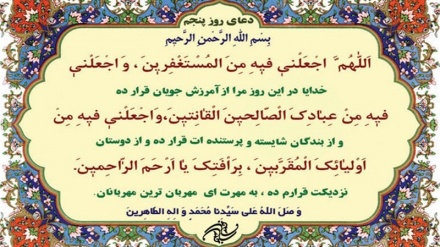 دعای روز پنجم
بِسْمِ اللهِ الرَّحْمنِ الرَّحیمِ
اَللّهُمَّ اجْعَلْنی فیهِ مِنَ المُسْتَغْفِرینَ ، وَ اجْعَلْنی
خدایا در این روز مرا از آمرزش جویان قرار ده
فیهِ مِنْ عِبادِکَ الْصّالِحینَ الْقانِتینَ،وَاجْعَلْنی فیهِ مِنْ
و از بندگان شایسته و پرستنده ات قرار ده و از دوستان
اَوْلِیائِکَ الْمُقَرَّبینَ ، بِرَأفَتِکَ یا اَرْحَمَ الرّاحِمینَ.
نزدیکت قرارم ده ، به مهرت ای مهربان ترین مهربانان.
وَ صَلَ اللهُ عَلی سَیِّدِنا مُحَمَدٍ وَ الِهِ الطّاهِرینَ